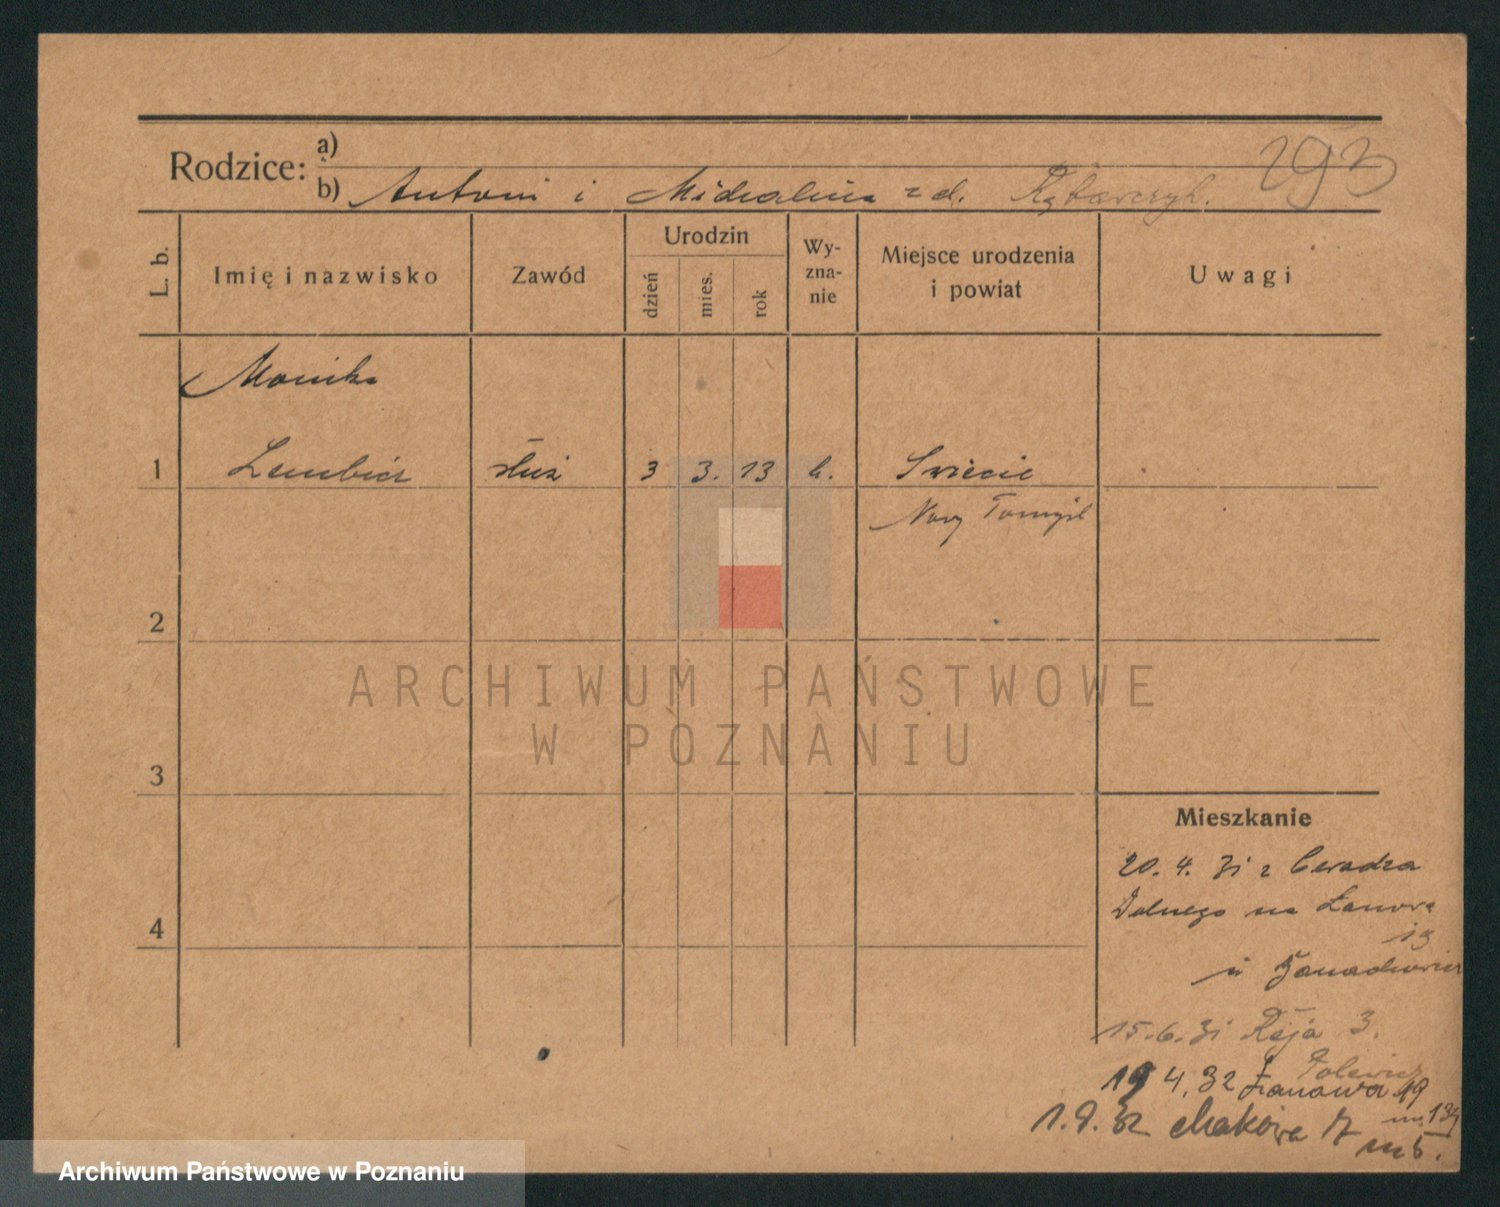 Rodzice:
a)
b) Antoni i Michalina z d. Rybarczyk.
193
L. b.
Imię i nazwisko
Zawód
Urodzin
dzień
mies.
rok
Wy-
zna-
nie
Miejsce urodzenia
i powiat
Uwagi
Monika
1 Zembicz służ 3 3. 13 k. Swiecie
Nowy Tomyśl
2
3
4
ARCHIWUM PAŃSTWOWE
W POZNANIU
Mieszkanie
20. 4. 31 z Ceradza
Dolnego na Łanową
19
u
15. 6. 31 Reja 3.
19 4. 32 Łanowa 19
1. 9. 32 Małgorzaty
Archiwum Państwowe w Poznaniu